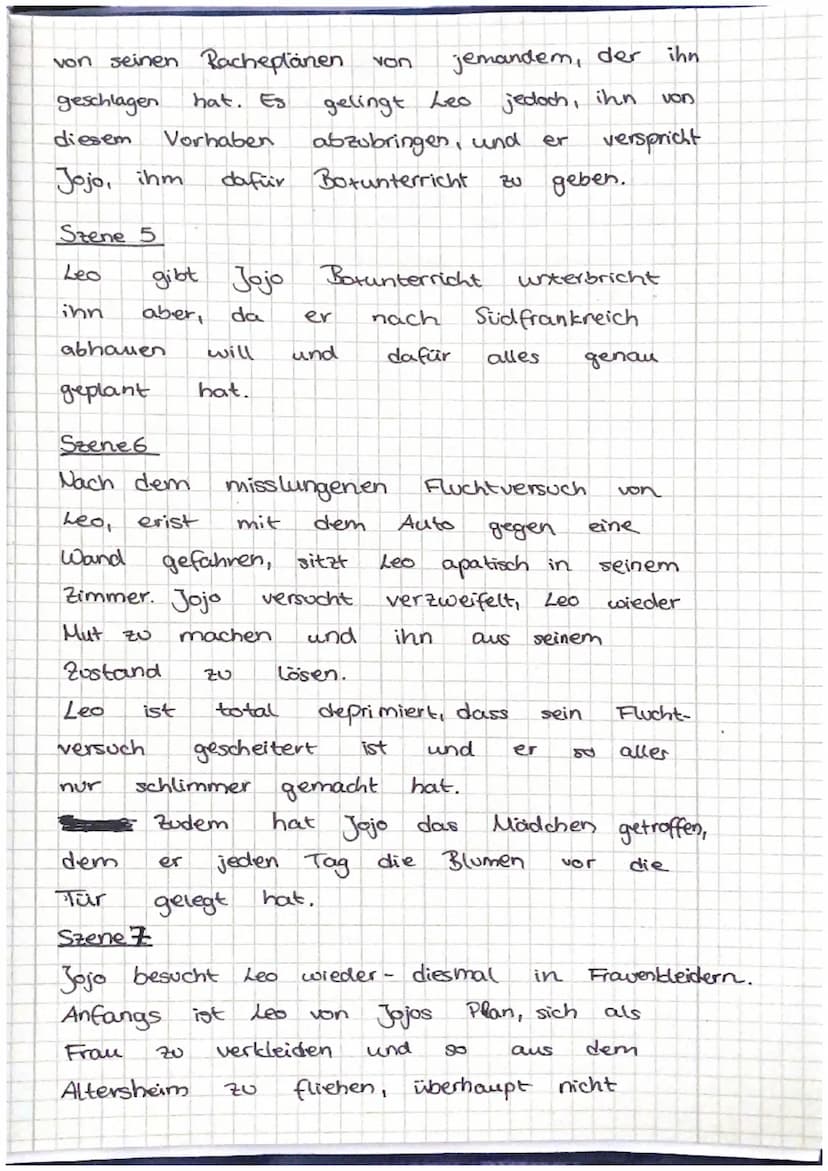 von seinen Racheplänen von jemandem, der ihn
geschlagen hat. Es gelingt Leo jedoch, ihn von
diesem Vorhaben abzubringen, und er verspricht
Jojo, ihm dafür Boxunterricht zu geben.
Szene 5
Leo gibt Jojo Boxunterricht unterbricht
ihn aber, da er nach Südfrankreich
abhauen will und dafür alles genau
geplant hat.
Szene 6
Nach dem misslungenen Fluchtversuch von
Leo, er ist mit dem Auto gegen eine
Wand gefahren, sitzt Leo apatisch in seinem
Zimmer. Jojo versucht verzweifelt, Leo wieder
Mut zu machen und ihn aus seinem
Zustand zu lösen.
Leo ist total deprimiert, dass sein Flucht-
versuch gescheitert ist und er so alles
nur schlimmer gemacht hat.
Zudem hat Jojo das Mädchen getroffen,
dem er jeden Tag die Blumen vor die
Tür gelegt hat.
Szene 7
Jojo besucht Leo wieder - diesmal in Frauenkleidern.
Anfangs ist Leo von Jojos Plan, sich als
Frau zu verkleiden und so aus dem
Altersheim zu fliehen, überhaupt nicht